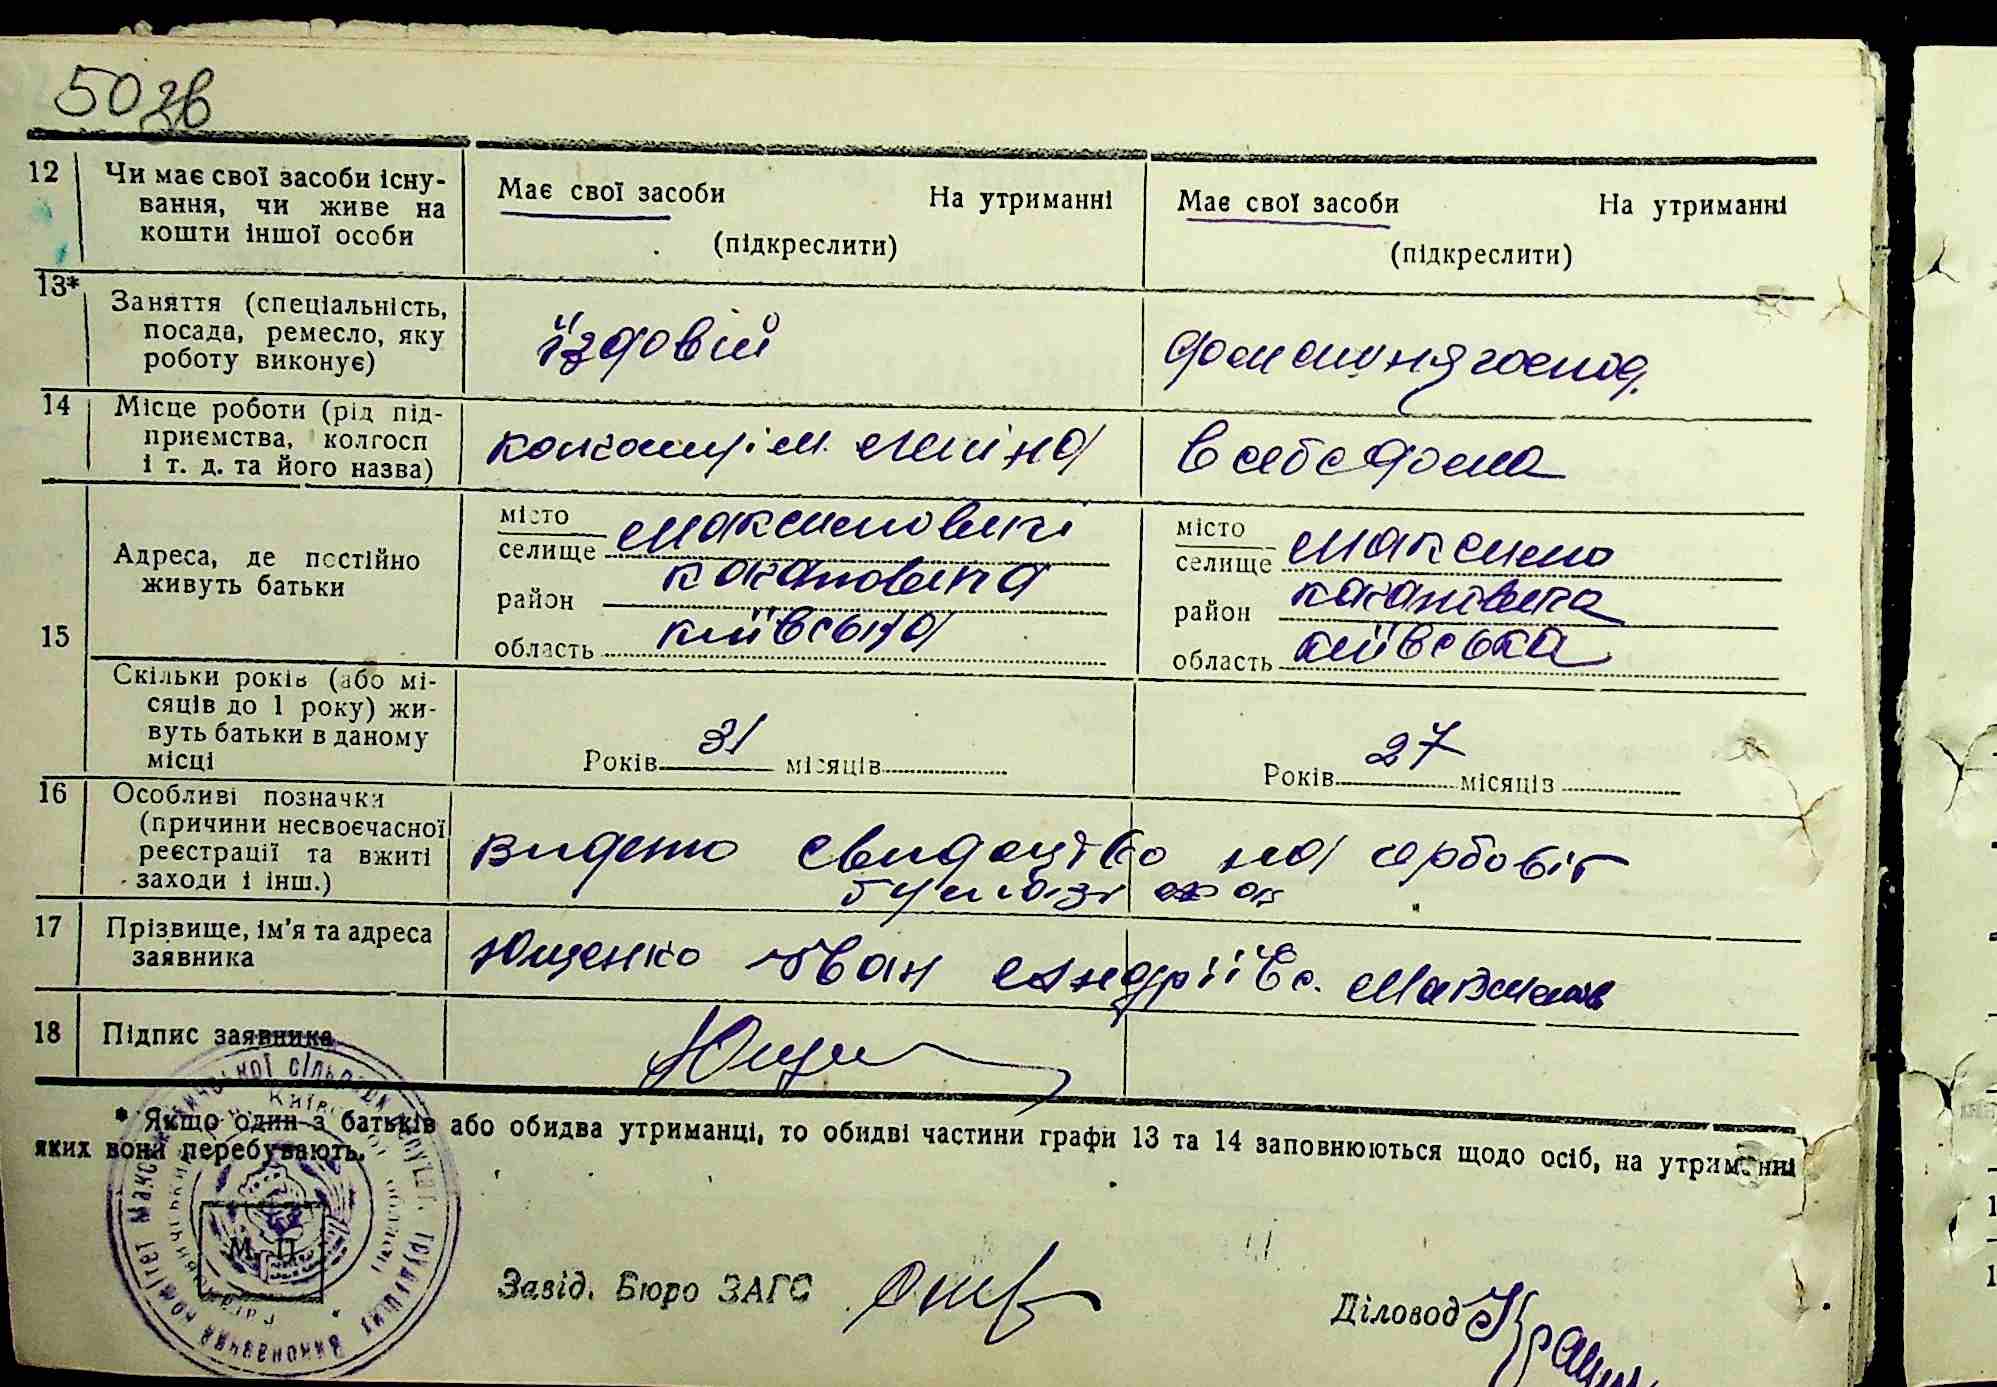 50 зв
12 Чи має свої засоби існу-
вання, чи живе на
кошти іншої особи
Має свої засоби На утриманні
(підкреслити)
Має свої засоби На утриманні
(підкреслити)
13* Заняття (спеціальність,
посада, ремесло, яку
роботу виконує)
їздовій
домашня господ.
14 Місце роботи (рід під-
приємства, колгосп
і т. д. та його назва)
колгосп ім. Леніна
в себе дома
15 Адреса, де постійно
живуть батьки
місто
селище Максимовичі
район Кагановича
область Київська
місто
селище Максимо
район Кагановича
область Київська
Скільки років (або мі-
сяців до 1 року) жи-
вуть батьки в даному
місці
Років 31 місяців
Років 27 місяців
16 Особливі позначки
(причини несвоєчасної
реєстрації та вжиті
заходи і інш.)
видано свидоцтво на
17 Прізвище, ім'я та адреса
заявника
Ющенко Іван Андріїв с.
18 Підпис заявника
Ющен
* Якщо один з батьків або обидва утриманці, то обидві частини графи 13 та 14 заповнюються щодо осіб, на утриманні
яких вони перебувають.
М. П.
Завід. Бюро ЗАГС
Діловод